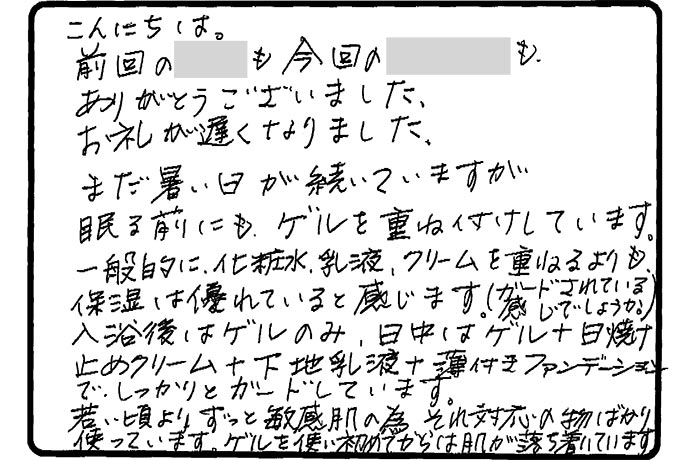 こんにちは。
前回の も今回の も、
ありがとうございました、
お礼が遅くなりました、
まだ暑い日が続いていますが
眠る前にも、ゲルを重ね付けしています。
一般的に、化粧水、乳液、クリームを重ねるよりも、
保湿は優れていると感じます。(ガードされている
感じでしょうか?)
入浴後はゲルのみ、日中はゲル+日焼け
止めクリーム+下地乳液+薄付きファンデーション
で、しっかりとガードしています。
若い頃よりずっと敏感肌の為、それ対応の物ばかり
使っています。ゲルを使い初めてからは肌が落ち着いています